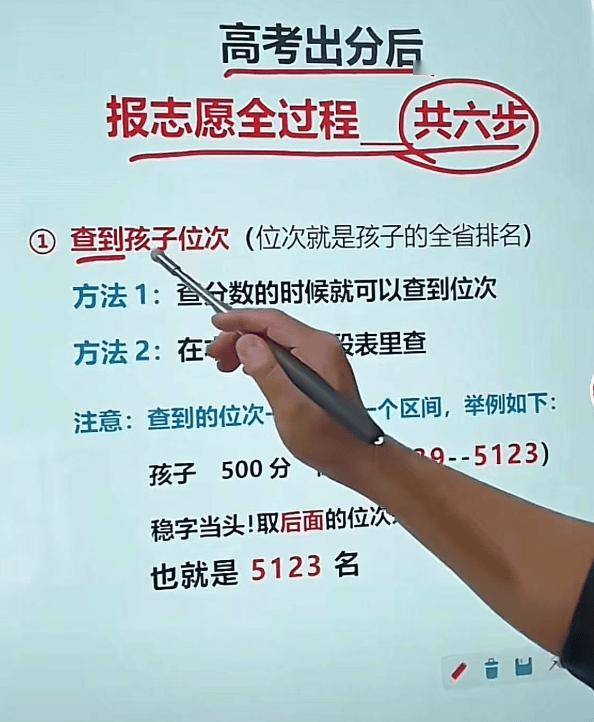 高考出分后
报志愿全过程 共六步
① 查到孩子位次（位次就是孩子的全省排名）
方法1：查分数的时候就可以查到位次
方法2：在 段表里查
注意：查到的位次 一个区间，举例如下：
孩子 500分 39--5123）
稳字当头！取后面的位次
也就是 5123 名